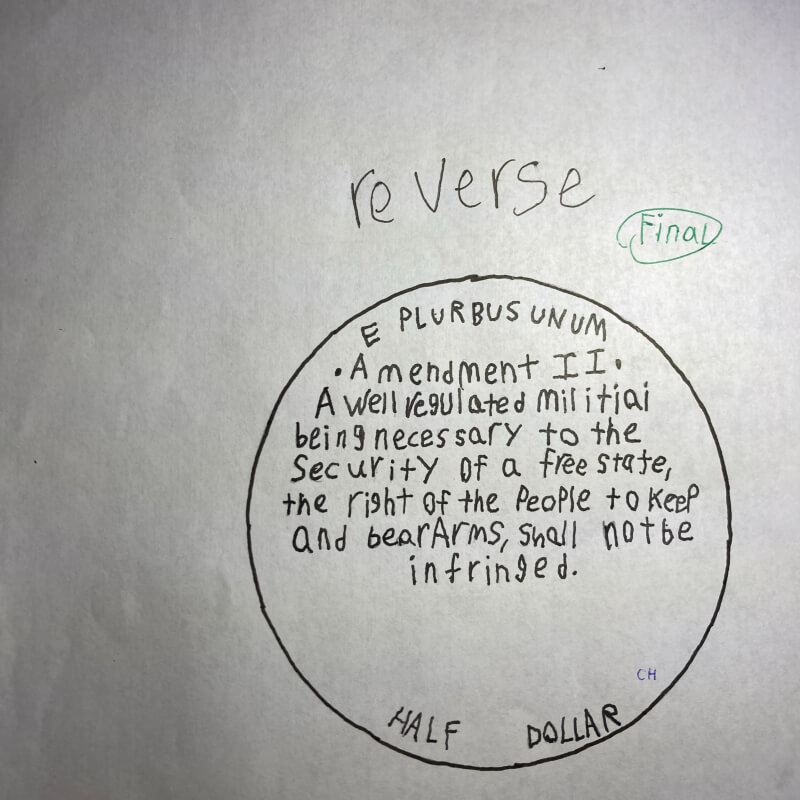 reverse
Final
E PLURBUS UNUM
• Amendment II •
A well regulated militiai
being necessary to the
Security of a free state,
the right of the People to keep
and bear Arms, shall not be
infringed.
CH
HALF DOLLAR